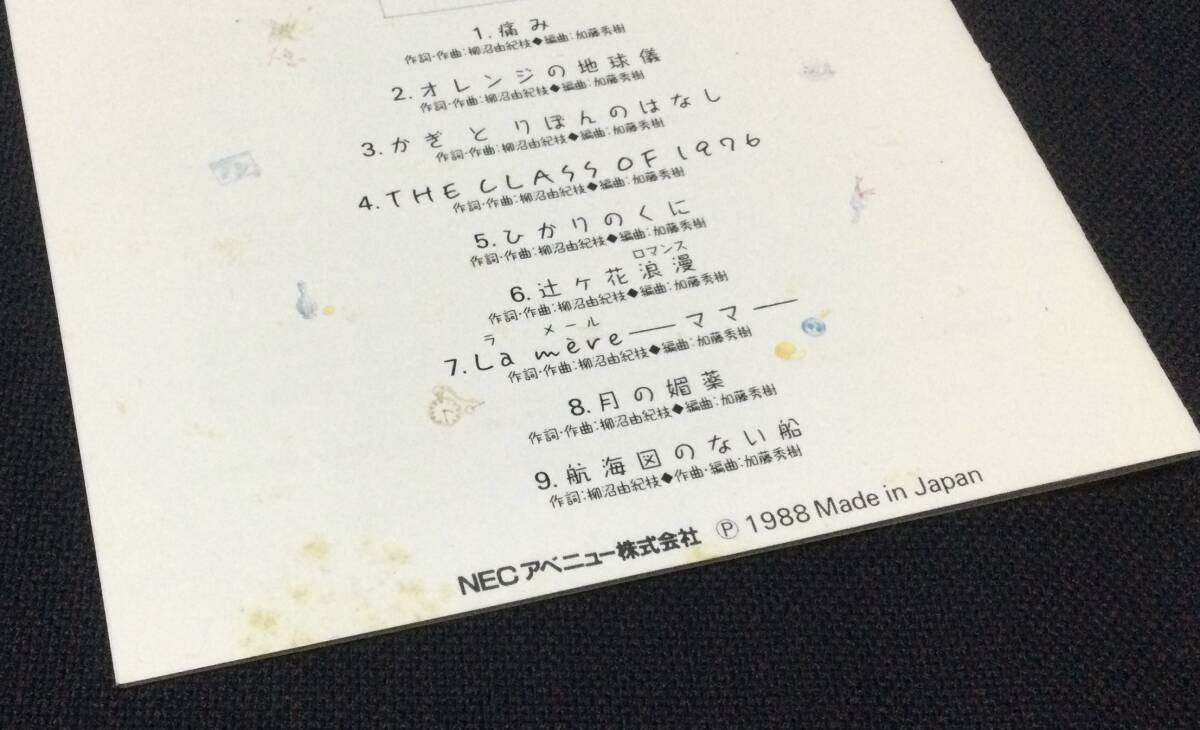 1. 痛み
作詞・作曲:柳沼由紀枝◆編曲:加藤秀樹
2. オレンジの地球儀
作詞・作曲:柳沼由紀枝◆編曲:加藤秀樹
3. かぎとりぼんのはなし
作詞・作曲:柳沼由紀枝◆編曲:加藤秀樹
4. THE CLASS OF 1976
作詞・作曲:柳沼由紀枝◆編曲:加藤秀樹
5. ひかりのくに
作詞・作曲:柳沼由紀枝◆編曲:加藤秀樹
ロマンス
6. 辻ヶ花浪漫
作詞・作曲:柳沼由紀枝◆編曲:加藤秀樹
ラ メール
7. La mère――ママ――
作詞・作曲:柳沼由紀枝◆編曲:加藤秀樹
8. 月の媚薬
作詞・作曲:柳沼由紀枝◆編曲:加藤秀樹
9. 航海図のない船
作詞:柳沼由紀枝◆作曲・編曲:加藤秀樹
NECアベニュー株式会社 ℗ 1988 Made in Japan